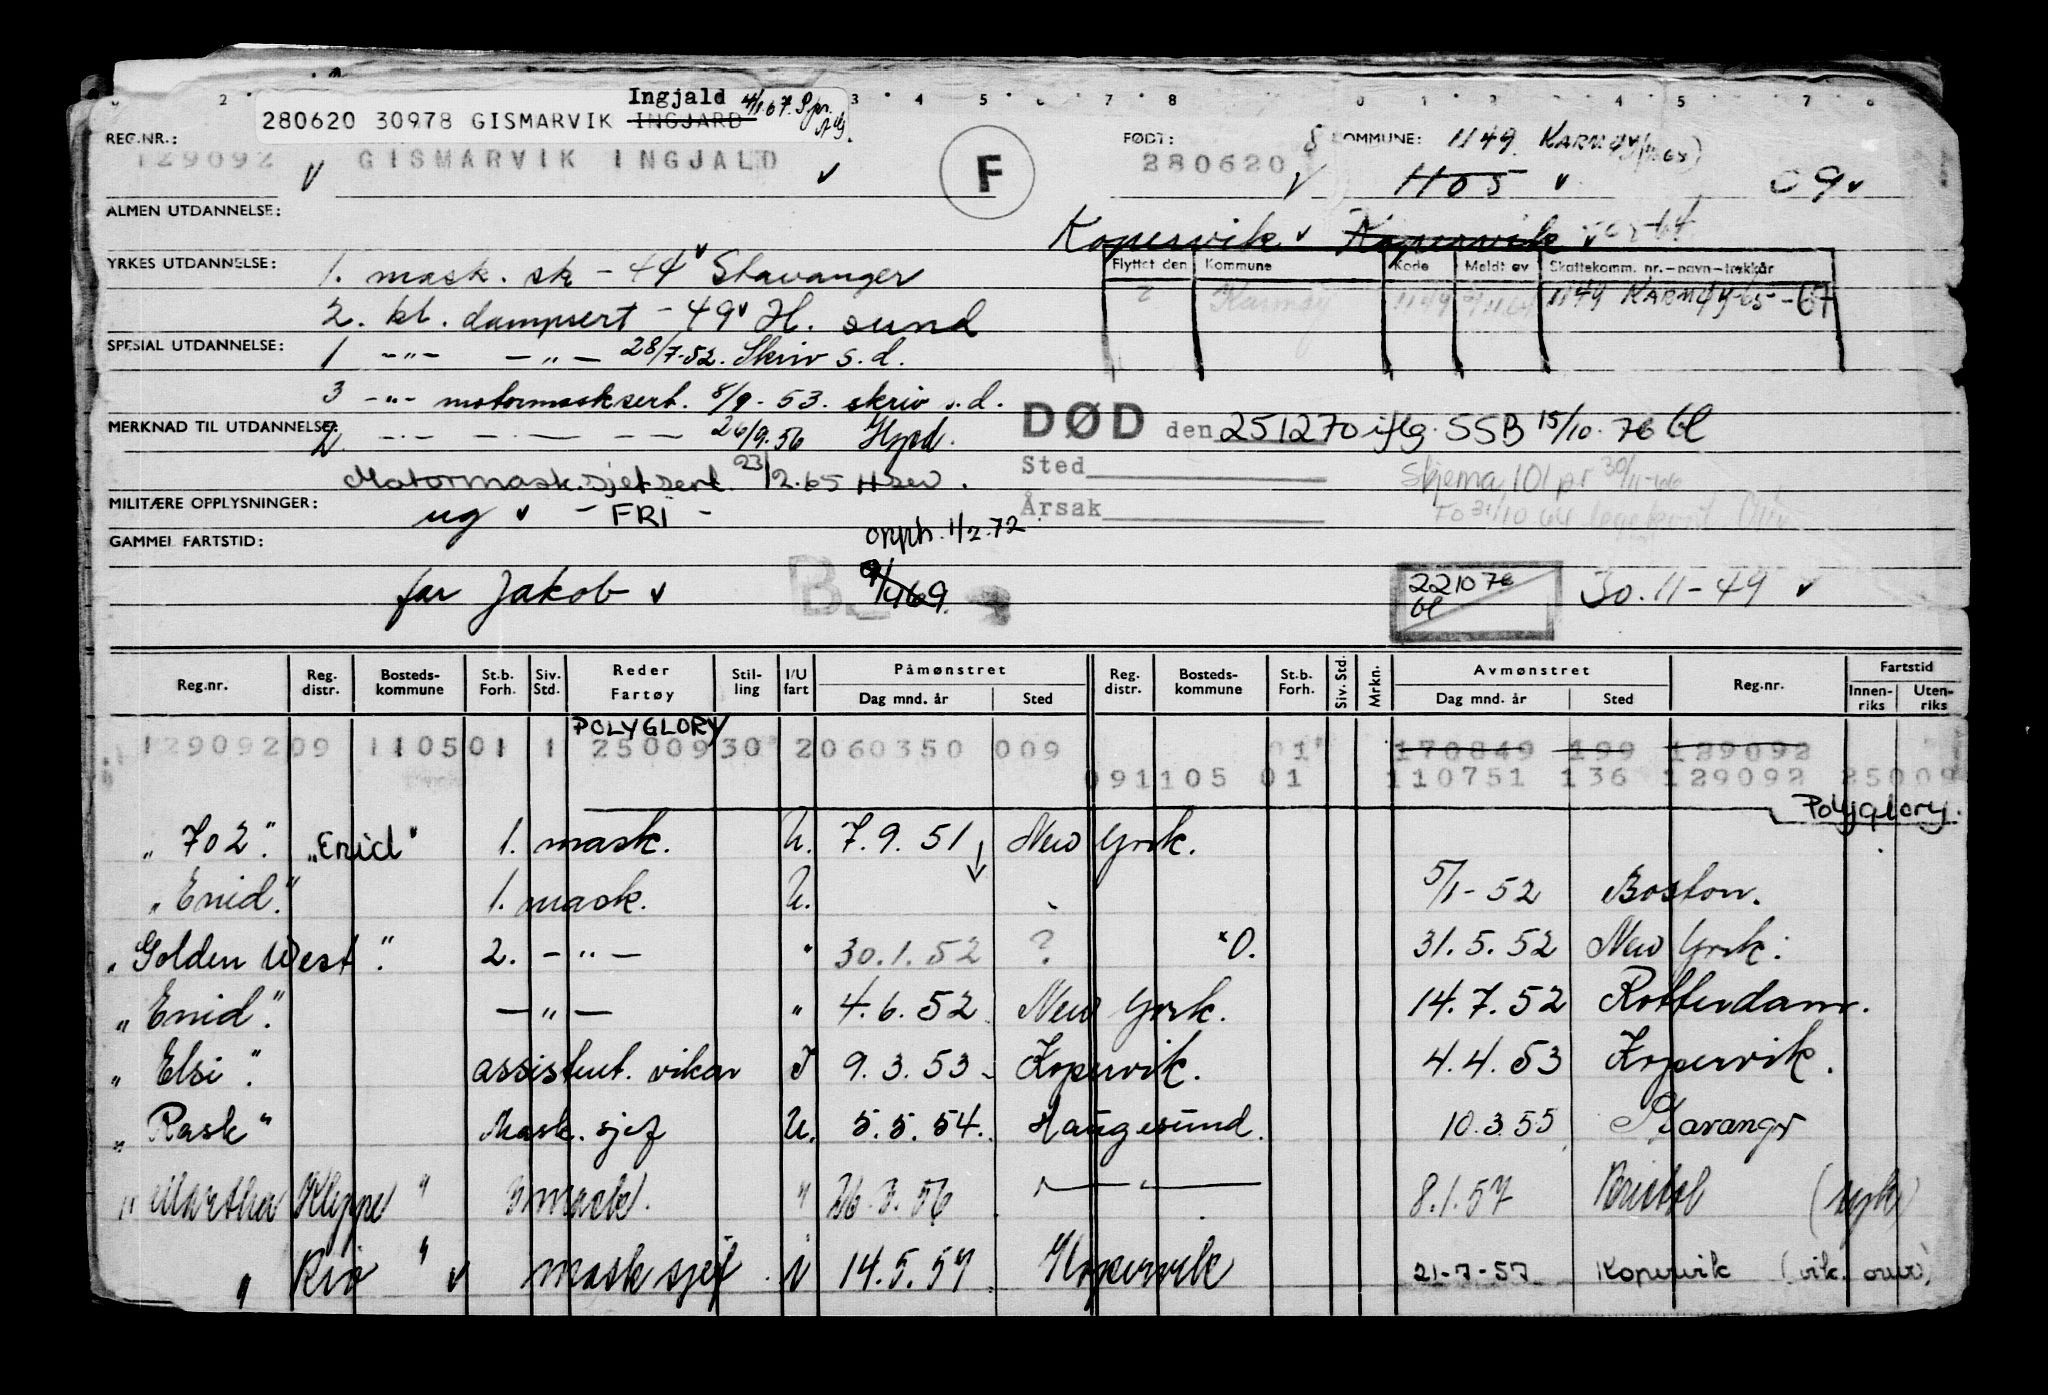 Ingjald 4/11.67.
280620 30978 GISMARVIK INGJARD
REG.NR.: FØDT: KOMMUNE: 1149 KARMØY
129092 GISMARVIK INGJALD F 280620 1105 09
ALMEN UTDANNELSE:
Kopervik Kopervik
YRKES UTDANNELSE: 1. mask. sk - 44 Stavanger
Flyttet den Kommune Kode Meldt av Skattekomm. nr.-navn-trekkår
Karmøy 1149 1149 KARMØY-65-67
2. kl. dampsert - 49 H. sund
SPESIAL UTDANNELSE: 1 -"- -"- 28/7-52. Skriv s.d.
3 -"- motormasksert. 8/9-53. skriv s.d.
MERKNAD TIL UTDANNELSE: 2 26/9.56 Hgsd.
DØD den 251270 iflg. SSB 15/10-76 bl
Motormask.sjefsert. 23/2.65 H sev.
Sted
Skjema 101 pr 30/11-66
MILITÆRE OPPLYSNINGER: ug - FRI -
Årsak
GAMMEL FARTSTID: opph. 1/2.72
far Jakob
221076 bl
30.11-49
Reg.nr. Reg. distr. Bosteds-kommune St.b. Forh. Siv. Std. Reder Fartøy Stil-ling I/U fart Påmønstret Dag mnd. år Sted Reg. distr. Bosteds-kommune St.b. Forh. Siv. Std. Mrkn. Avmønstret Dag mnd. år Sted Reg.nr. Fartstid Innen-riks Uten-riks
POLYGLORY
129092 09 1105 01 1 25009 30 2 060350 009 01 170849 199 129092
091105 01 110751 136 129092 25009
Polyglory.
"702". "Enid" 1. mask. U. 7.9.51 New York.
"Enid." 1. mask. U. 5/1-52 Boston.
"Golden West". 2. -"- " 30.1.52 ? *O. 31.5.52 New York.
"Enid." -"- " 4.6.52 New York. 14.7.52 Rotterdam.
"Elsi". assistent. vikar I 9.3.53 Kopervik. 4.4.53 Kopervik.
"Rask" Mask. sjef U. 5.5.54. Haugesund. 10.3.55 Stavangr
"Martha Kleppe" mask. " 26.3.56 -"- 8.1.57 Bristol (syk)
"Rio" mask sjef i 14.5.57 Kopervik 21-7-57 Kopervik